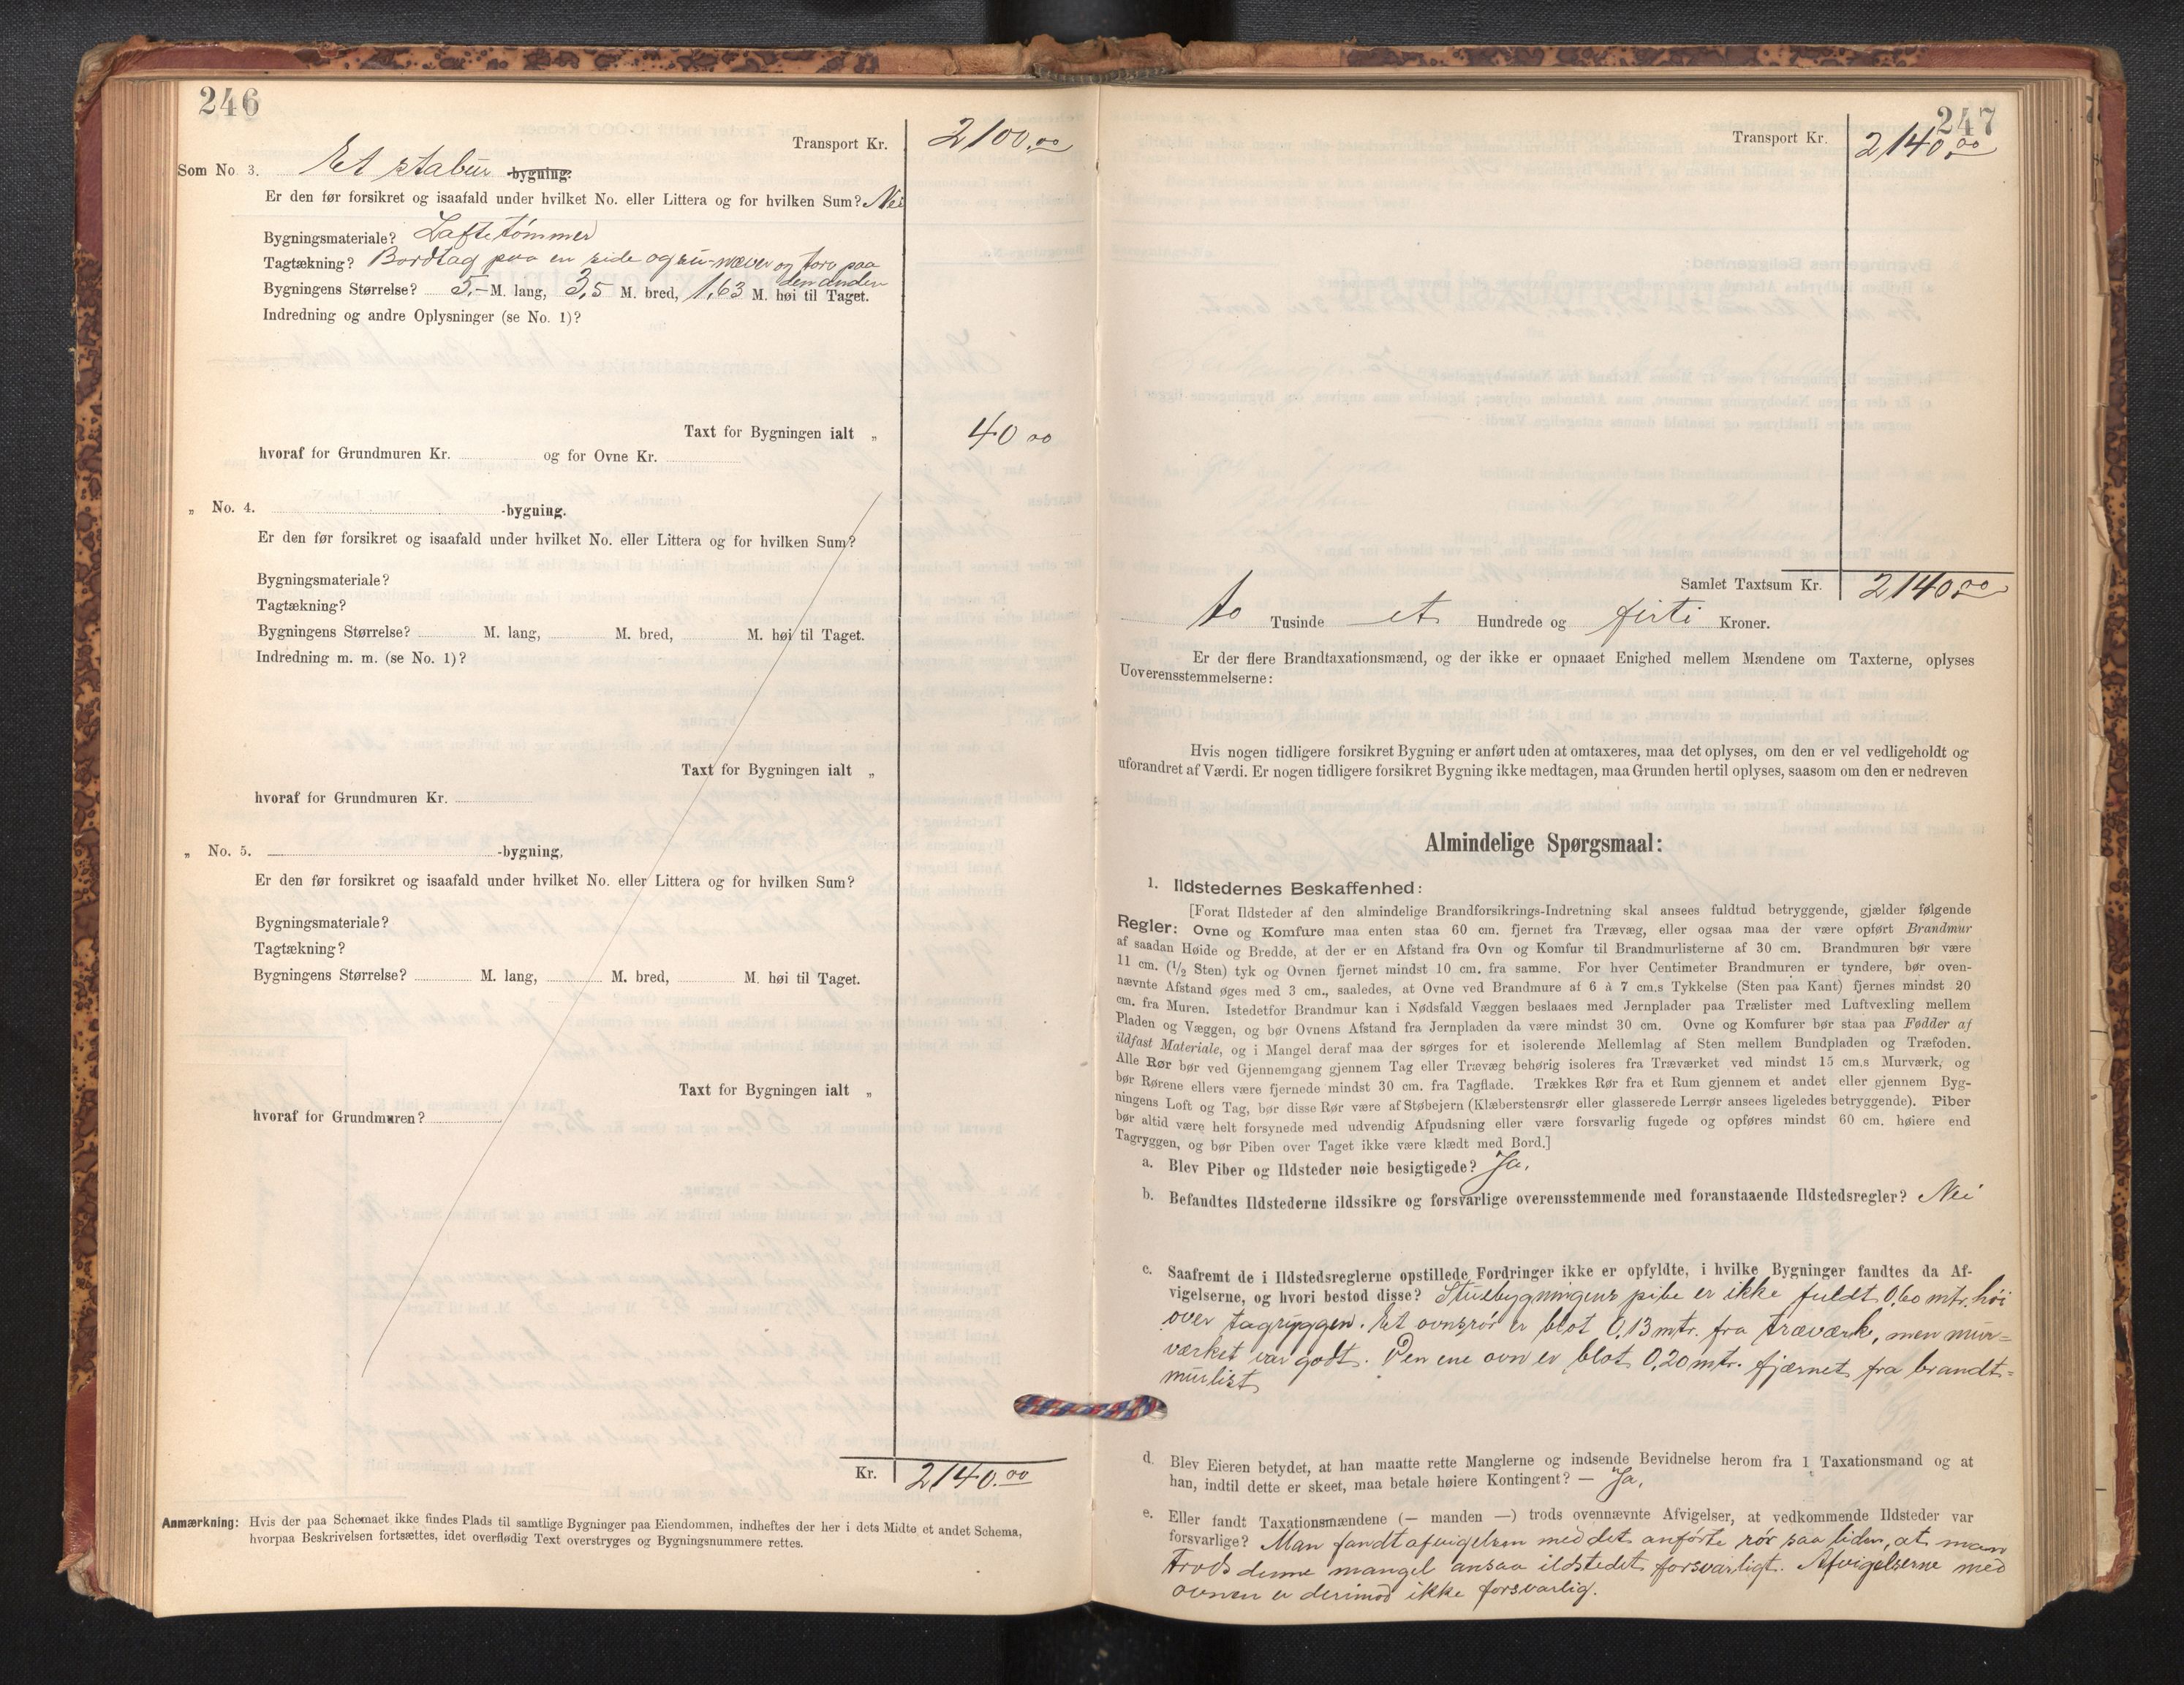 246
Transport Kr. 2100.00
Som No. 3. Et stabur -bygning.
Er den før forsikret og isaafald under hvilket No. eller Littera og for hvilken Sum? Nei
Bygningsmateriale? Laftetømmer
Tagtækning? Bordtag paa en side og næver og torv paa
den anden
Bygningens Størrelse? 5,- M. lang, 3,5 M. bred, 1,63 M. høi til Taget.
Indredning og andre Oplysninger (se No. 1)?
Taxt for Bygningen ialt „ 40 00
hvoraf for Grundmuren Kr. og for Ovne Kr.
„ No. 4. -bygning.
Er den før forsikret og isaafald under hvilket No. eller Littera og for hvilken Sum?
Bygningsmateriale?
Tagtækning?
Bygningens Størrelse? M. lang, M. bred, M. høi til Taget.
Indredning m. m. (se No. 1)?
Taxt for Bygningen ialt „
hvoraf for Grundmuren Kr.
„ No. 5. -bygning,
Er den før forsikret og isaafald under hvilket No. eller Littera og for hvilken Sum?
Bygningsmateriale?
Tagtækning?
Bygningens Størrelse? M. lang, M. bred, M. høi til Taget.
Taxt for Bygningen ialt „
hvoraf for Grundmuren?
Kr. 2140.00
Anmærkning: Hvis der paa Schemaet ikke findes Plads til samtlige Bygninger paa Eiendommen, indheftes der her i dets Midte et andet Schema,
hvorpaa Beskrivelsen fortsættes, idet overflødig Text overstryges og Bygningsnummere rettes.
247
Transport Kr. 2140.00
Samlet Taxtsum Kr. 2140.00
to Tusinde et Hundrede og firti Kroner.
Er der flere Brandtaxationsmænd, og der ikke er opnaaet Enighed mellem Mændene om Taxterne, oplyses
Uoverensstemmelserne:
Hvis nogen tidligere forsikret Bygning er anført uden at omtaxeres, maa det oplyses, om den er vel vedligeholdt og
uforandret af Værdi. Er nogen tidligere forsikret Bygning ikke medtagen, maa Grunden hertil oplyses, saasom om den er nedreven
Almindelige Spørgsmaal:
1. Ildstedernes Beskaffenhed:
[Forat Ildsteder af den almindelige Brandforsikrings-Indretning skal ansees fuldtud betryggende, gjælder følgende
Regler: Ovne og Komfure maa enten staa 60 cm. fjernet fra Trævæg, eller ogsaa maa der være opført Brandmur
af saadan Høide og Bredde, at der er en Afstand fra Ovn og Komfur til Brandmurlisterne af 30 cm. Brandmuren bør være
11 cm. (1/2 Sten) tyk og Ovnen fjernet mindst 10 cm. fra samme. For hver Centimeter Brandmuren er tyndere, bør oven-
nævnte Afstand øges med 3 cm., saaledes, at Ovne ved Brandmure af 6 à 7 cm.s Tykkelse (Sten paa Kant) fjernes mindst 20
cm. fra Muren. Istedetfor Brandmur kan i Nødsfald Væggen beslaaes med Jernplader paa Trælister med Luftvexling mellem
Pladen og Væggen, og bør Ovnens Afstand fra Jernpladen da være mindst 30 cm. Ovne og Komfurer bør staa paa Fødder af
ildfast Materiale, og i Mangel deraf maa der sørges for et isolerende Mellemlag af Sten mellem Bundpladen og Træfoden.
Alle Rør bør ved Gjennemgang gjennem Tag eller Trævæg behørig isoleres fra Træværket ved mindst 15 cm.s Murværk, og
bør Rørene ellers være fjernede mindst 30 cm. fra Tagflade. Trækkes Rør fra et Rum gjennem et andet eller gjennem Byg-
ningens Loft og Tag, bør disse Rør være af Støbejern (Klæberstensrør eller glasserede Lerrør ansees ligeledes betryggende). Piber
bør altid være helt forsynede med udvendig Afpudsning eller være forsvarlig fugede og opføres mindst 60 cm. høiere end
Tagryggen, og bør Piben over Taget ikke være klædt med Bord.]
a. Blev Piber og Ildsteder nøie besigtigede? Ja.
b. Befandtes Ildstederne ildssikre og forsvarlige overensstemmende med foranstaaende Ildstedsregler? Nei
c. Saafremt de i Ildstedsreglerne opstillede Fordringer ikke er opfyldte, i hvilke Bygninger fandtes da Af-
vigelserne, og hvori bestod disse? Stuebygningens pibe er ikke fuldt 0,60 mtr. høi
over tagryggen. Et ovnsrør er blot 0,13 mtr. fra træværk, men mur=
værket var godt. Den ene ovn er blot 0,20 mtr. fjærnet fra brandt=
murlist
d. Blev Eieren betydet, at han maatte rette Manglerne og indsende Bevidnelse herom fra 1 Taxationsmand og at
han, indtil dette er skeet, maa betale høiere Kontingent? — Ja.
e. Eller fandt Taxationsmændene (— manden —) trods ovennævnte Afvigelser, at vedkommende Ildsteder var
forsvarlige? Man fandt afvigelsen med det anførte rør saa liden, at man
trods denne mangel ansaa ildstedet forsvarligt. Afvigelserne med
ovnen er derimod ikke forsvarlig.